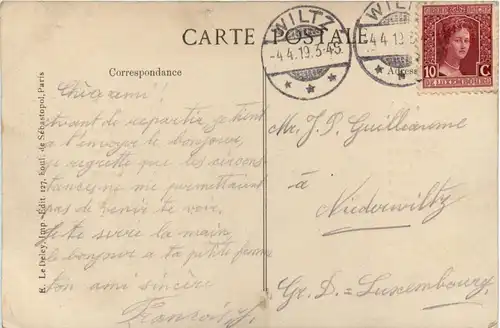 CARTE POSTALE
WILTZ
-4.4.19.3-45
WILTZ
-4.4.19.3
10 C
Correspondance
Adresse
Cher ami!
Avant de repartir je tiens
a t'envoyer le bonjour,
je regrette que les circons-
tances ne me permettaient
pas de venir te voir.
Je te serre la main,
le bonjour a ta petite femme
ton ami sincère
François
Mr. J. P. Guillaume
à
Niederwiltz
Gr. D = Luxembourg
E. Le Deley, Imp.-Edit. 127, Boul. de Sébastopol, Paris